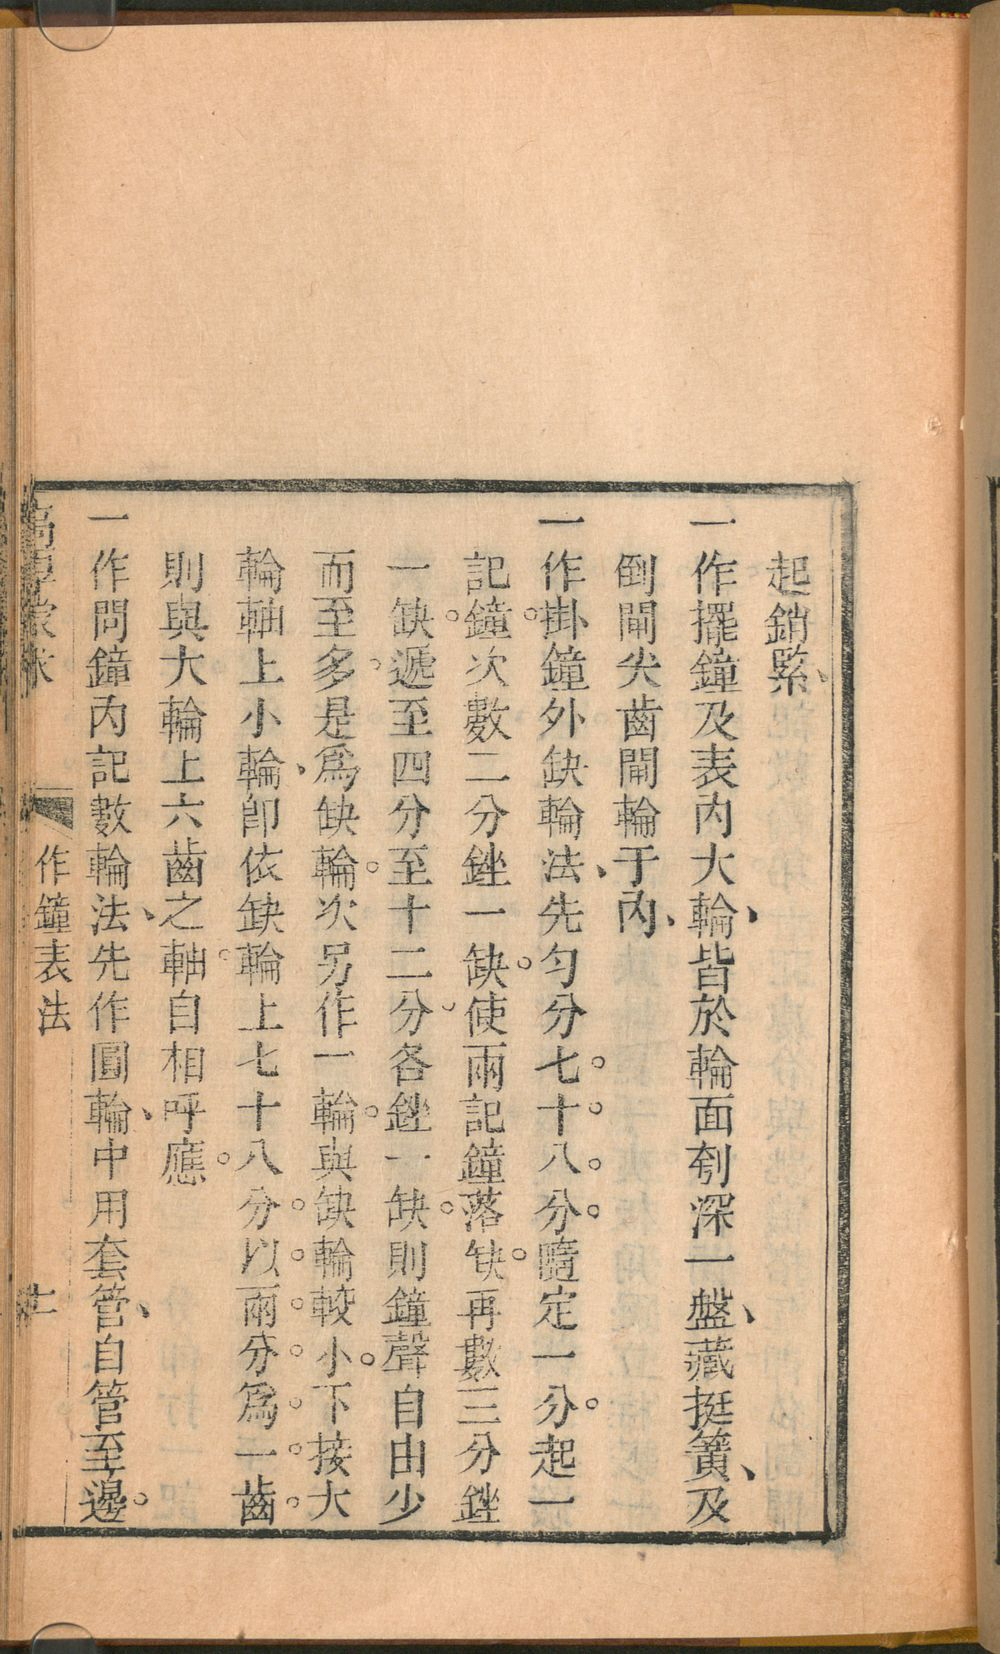 起銷緊、
一作擺鐘及表內大輪、皆於輪面刳深一盤、藏挺簧、及
倒閘尖齒閘輪于內、
一作掛鐘外缺輪法、先勻分七。十。八。分。隨定一分。起一
記。鐘次數二分銼一缺。使兩記鐘落缺。再數三分銼
一缺。遞至四分至十二分、各銼一缺。則鐘聲自由少
而至多。是爲缺輪。次另作一輪。與缺輪較小。下接大
輪軸上小輪、卽依缺輪上七十八分。以。兩。分。爲。一。齒。
則與大輪上六齒之軸。自相呼應。
一作問鐘內記數輪法、先作圓輪、中用套管、自管至邊。
高厚蒙求
作鐘表法